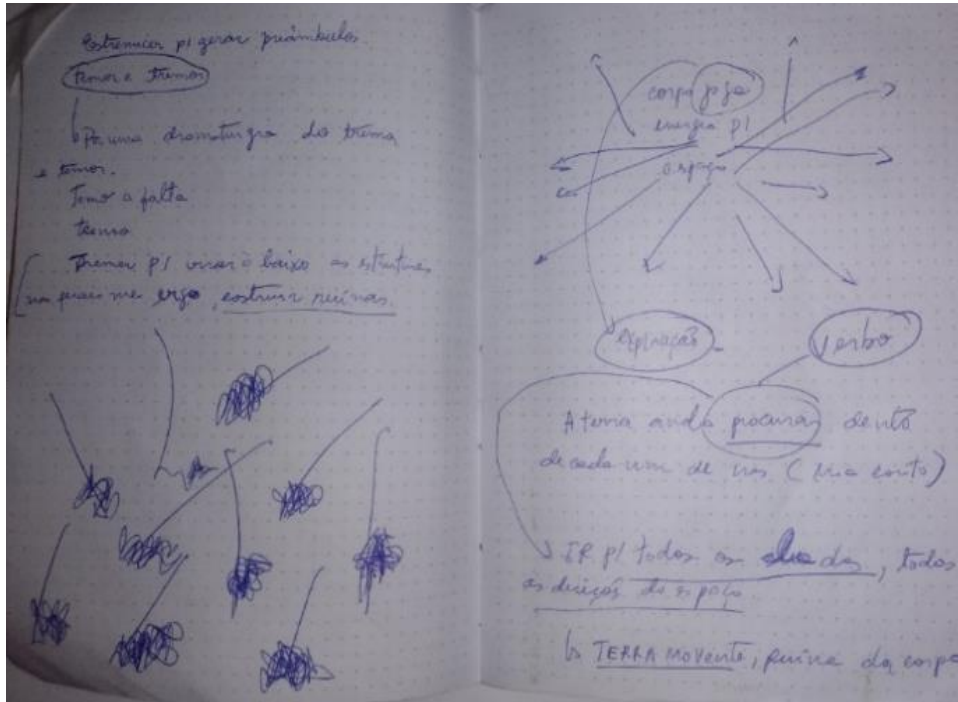 Estremecer p/ gerar preâmbulos.
Temor e Tremor
Por uma dramaturgia do trema
e temor.
Temo a falta
tremo
Tremer p/ virar à baixo as estruturas
nas quais me ergo, construir ruínas.
corpo joga
energia p/
o espaço
expiração
Verbo
A terra anda procurar dentro
de cada um de nós (mia couto)
IR p/ todos os lados, todas
as direções do espaço
TERRA MOVENTE, ruína do corpo